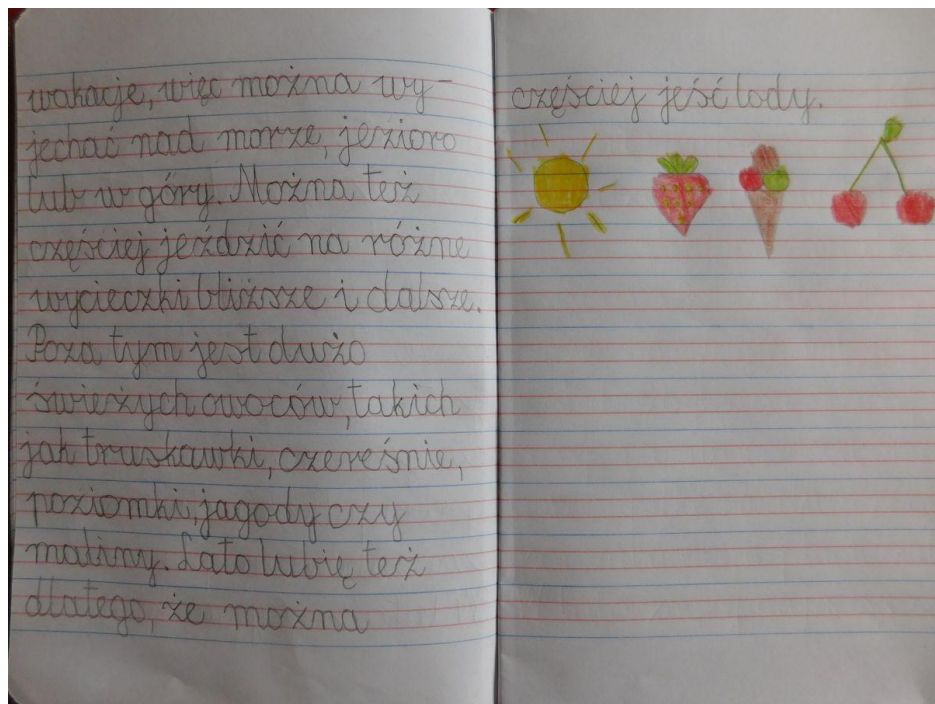 wakacje, więc można wy-
jechać nad morze, jezioro
lub w góry. Można też
częściej jeździć na różne
wycieczki bliższe i dalsze.
Poza tym jest dużo
świeżych owoców, takich
jak truskawki, czereśnie,
poziomki, jagody czy
maliny. Lato lubię też
dlatego, że można
częściej jeść lody.